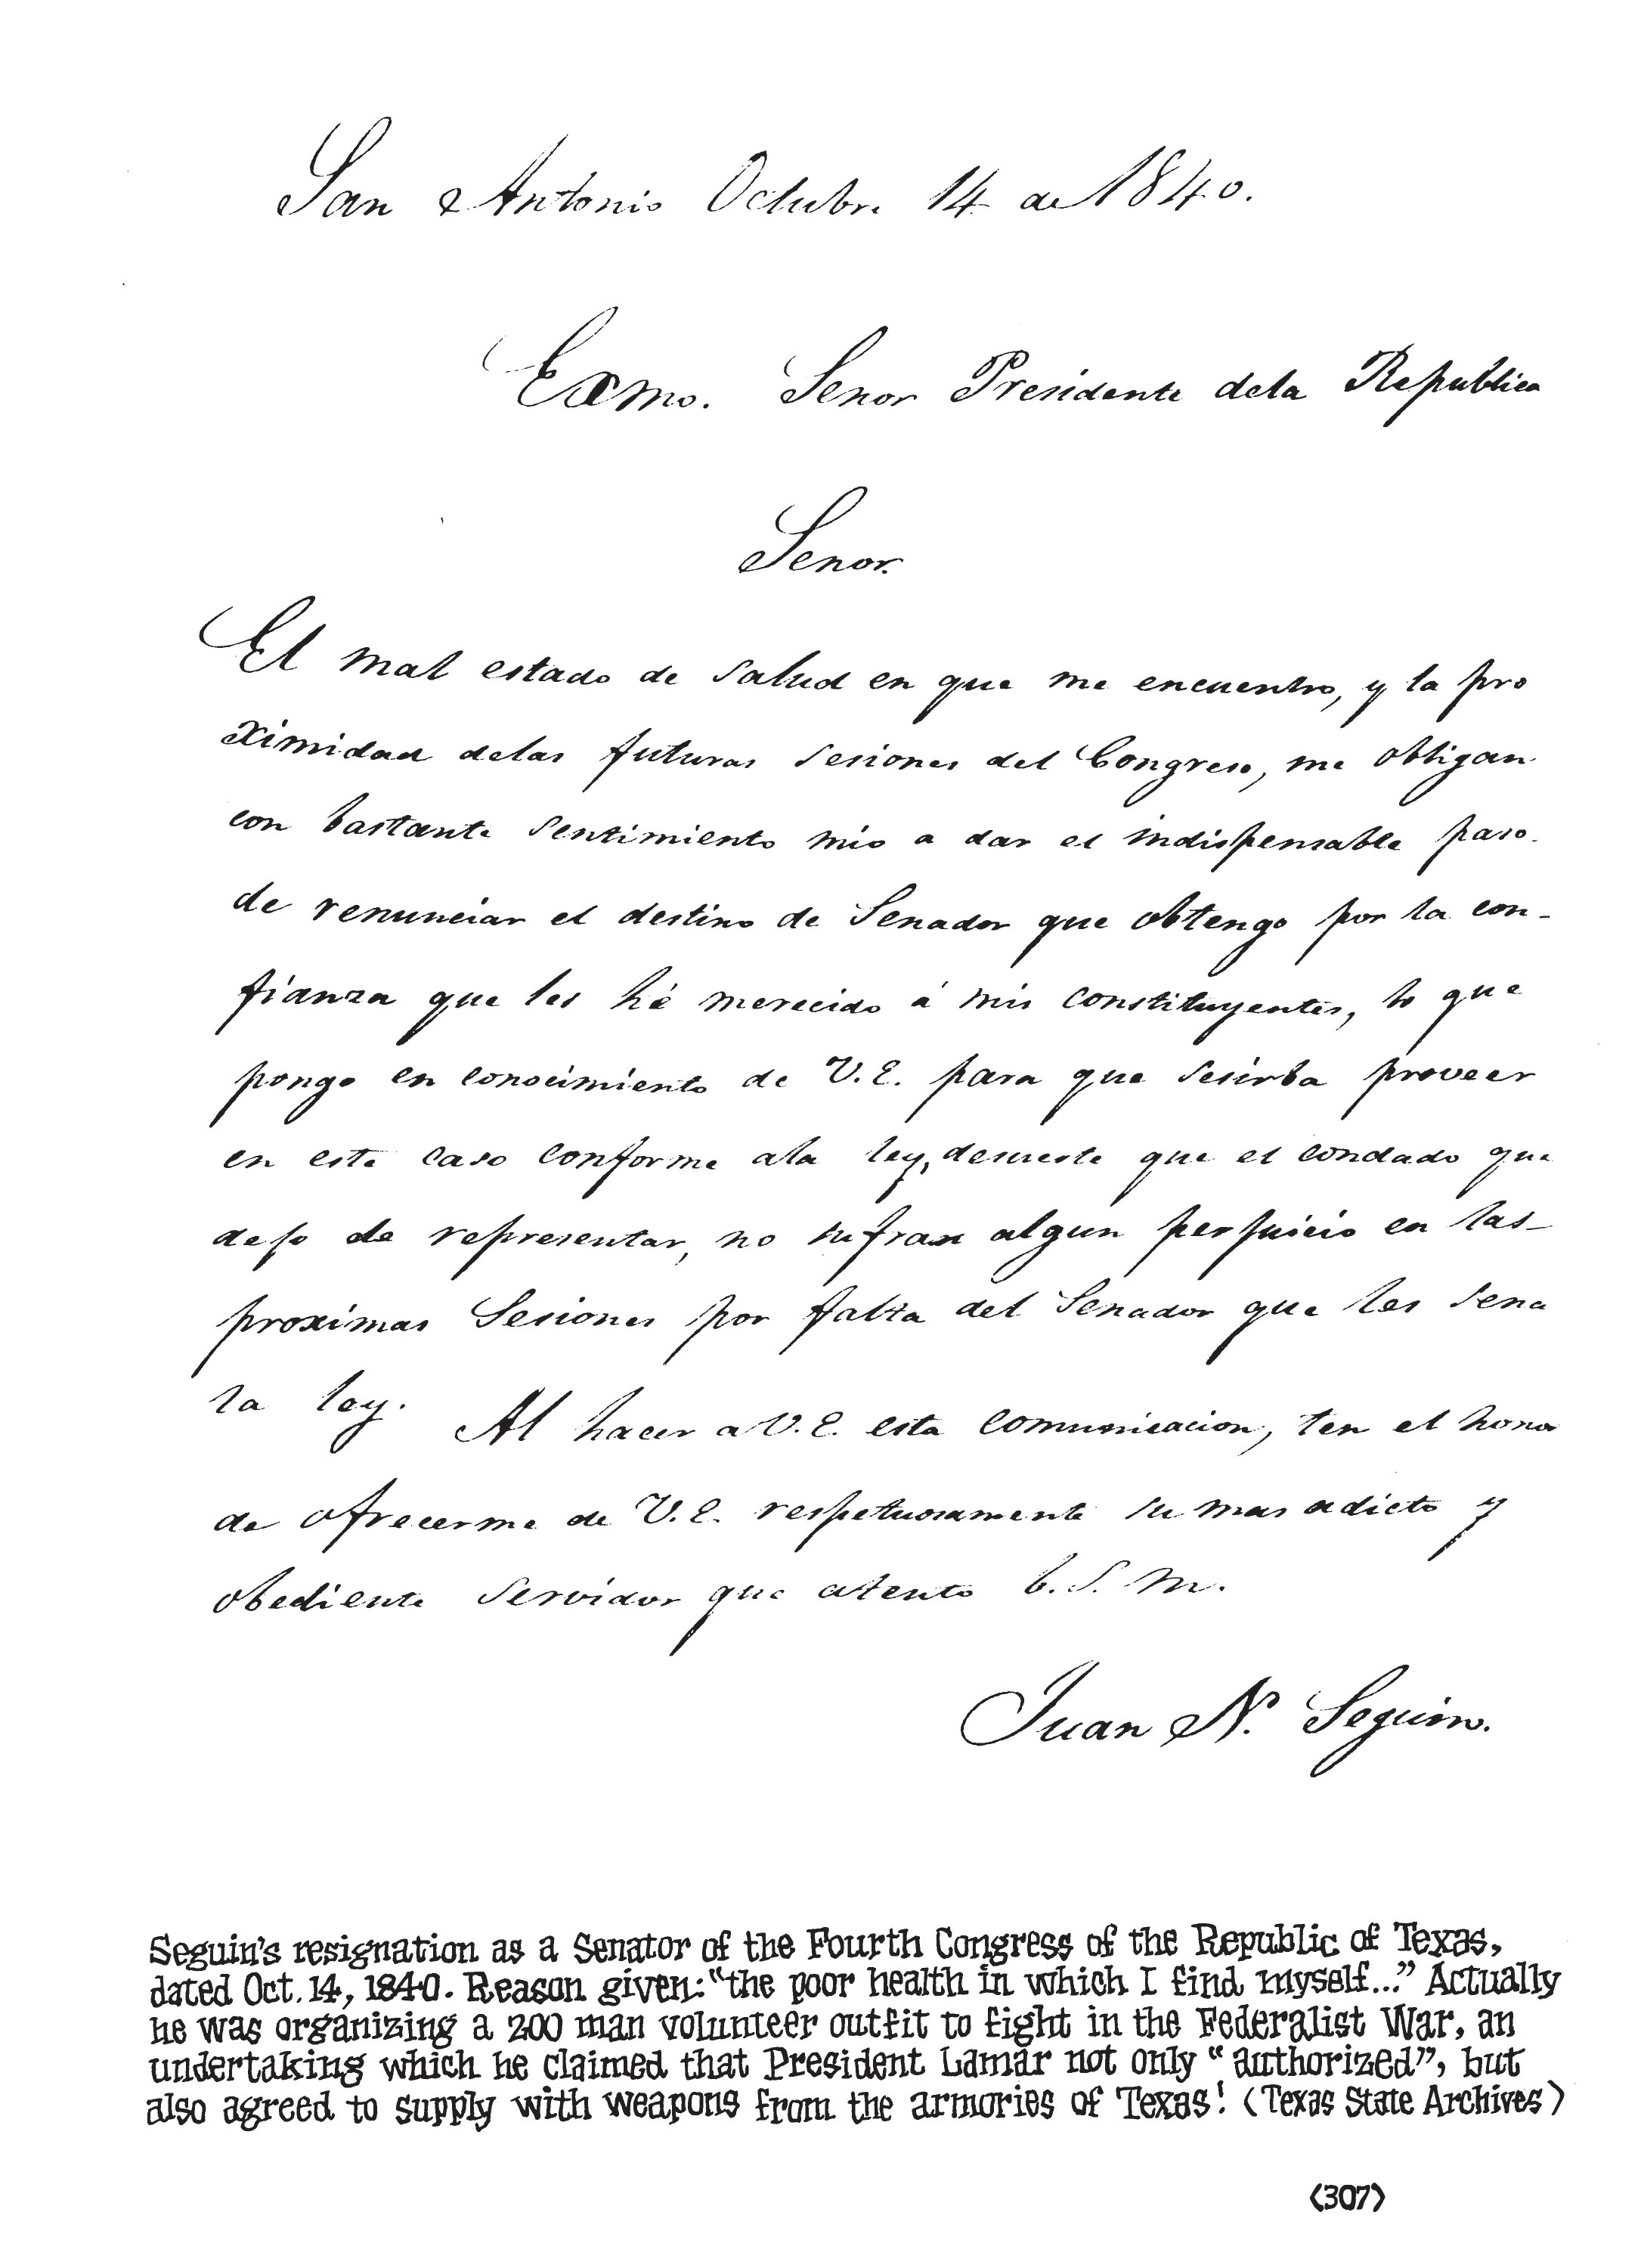 San Antonio Octubre 14 de 1840.
Exmo. Senor Presidente dela Republica
Senor.
El mal estado de salud en que me encuentro, y la pro
ximidad delas futuras sesiones del Congreso, me obligan
con bastante sentimiento mio a dar el indispensable paso.
de renunciar el destino de Senador que obtengo por la con-
fianza que les hé merecido á mis constituyentes, lo que
pongo en conocimiento de V.E. para que sesirba proveer
en este caso conforme ala ley, desuerte que el condado que
dejo de representar, no sufran algun perjuicio en las-
proximas Sesiones por falta del Senador que les sena
la ley. Al hacer a V.E. esta comunicacion, ten el honor
de ofrecerme de V.E. respetuosamente su mas adicto y
obediente servidor que atento b.s.m.
Juan N. Seguin.
Seguin's resignation as a Senator of the Fourth Congress of the Republic of Texas,
dated Oct. 14, 1840. Reason given: "the poor health in which I find myself..." Actually
he was organizing a 200 man volunteer outfit to fight in the Federalist War, an
undertaking which he claimed that President Lamar not only "authorized", but
also agreed to supply with weapons from the armories of Texas! (Texas State Archives)
(307)